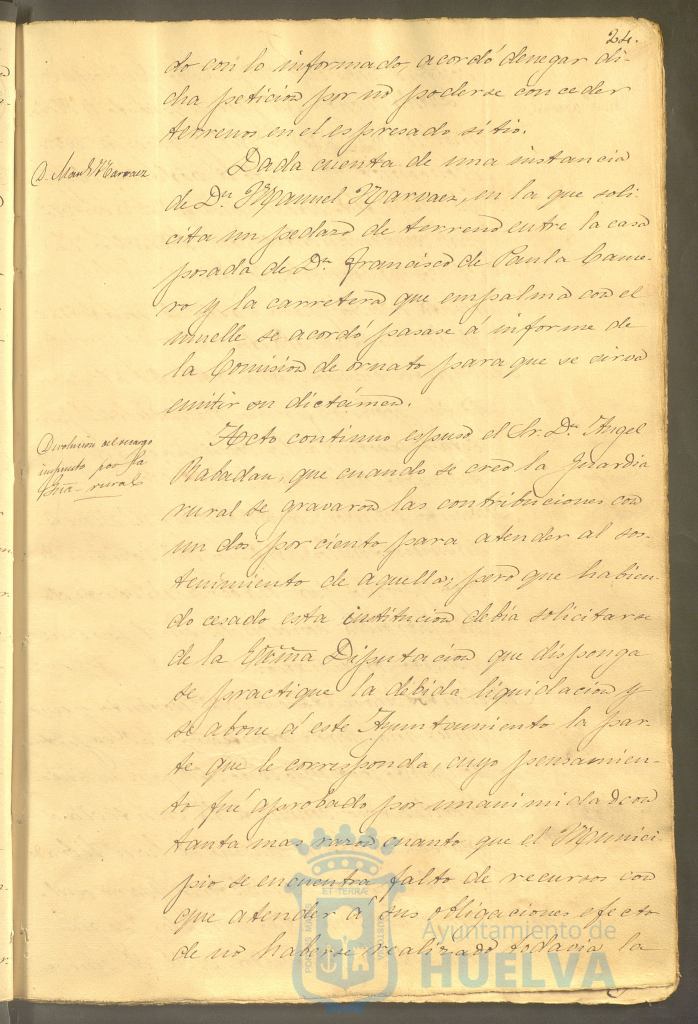 24.
do con lo informado, acordó denegar di-
cha peticion por no poderse conceder
terrenos en el espresado sitio.
D. Manl. Narvaez
Dada cuenta de una instancia
de Dn. Manuel Narvaez, en la que soli-
cita un pedazo de terreno entre la casa
posada de Dn. Francisco de Paula Came-
ro y la carretera que empalma con el
muelle se acordó pasase á informe de
la Comision de ornato para que se sirva
emitir su dictámen.
Devolucion del recargo
impuesto por la
Gdia. rural
Acto continuo espuso el Sr. Dn. Angel
Rabadan, que cuando se creó la Guardia
rural se gravaron las contribuciones con
un dos por ciento para atender al sos-
tenimiento de aquella; pero que habien-
do cesado esta institucion debia solicitarse
de la Excma Diputacion que disponga
se practique la debida liquidacion y
se abone á este Ayuntamiento la par-
te que le corresponda, cuyo pensamien-
to fué aprobado por unanimidad con
tanta mas razon cuanto que el Munici-
pio se encuentra falto de recursos con
que atender á sus obligaciones efecto
de no haberse realizado todavia la
Ayuntamiento de
HUELVA